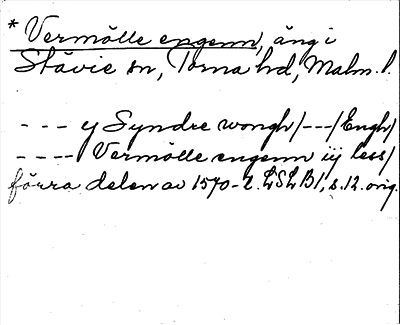 * Vermölle engenn, äng i
Stävie sn, Torna hd, Malm. l.
--- y Syndre wongh/---/Engh/
---- Vermölle engenn iÿ less/
förra delen av 1570-t. LSLB1, s. 12. orig.